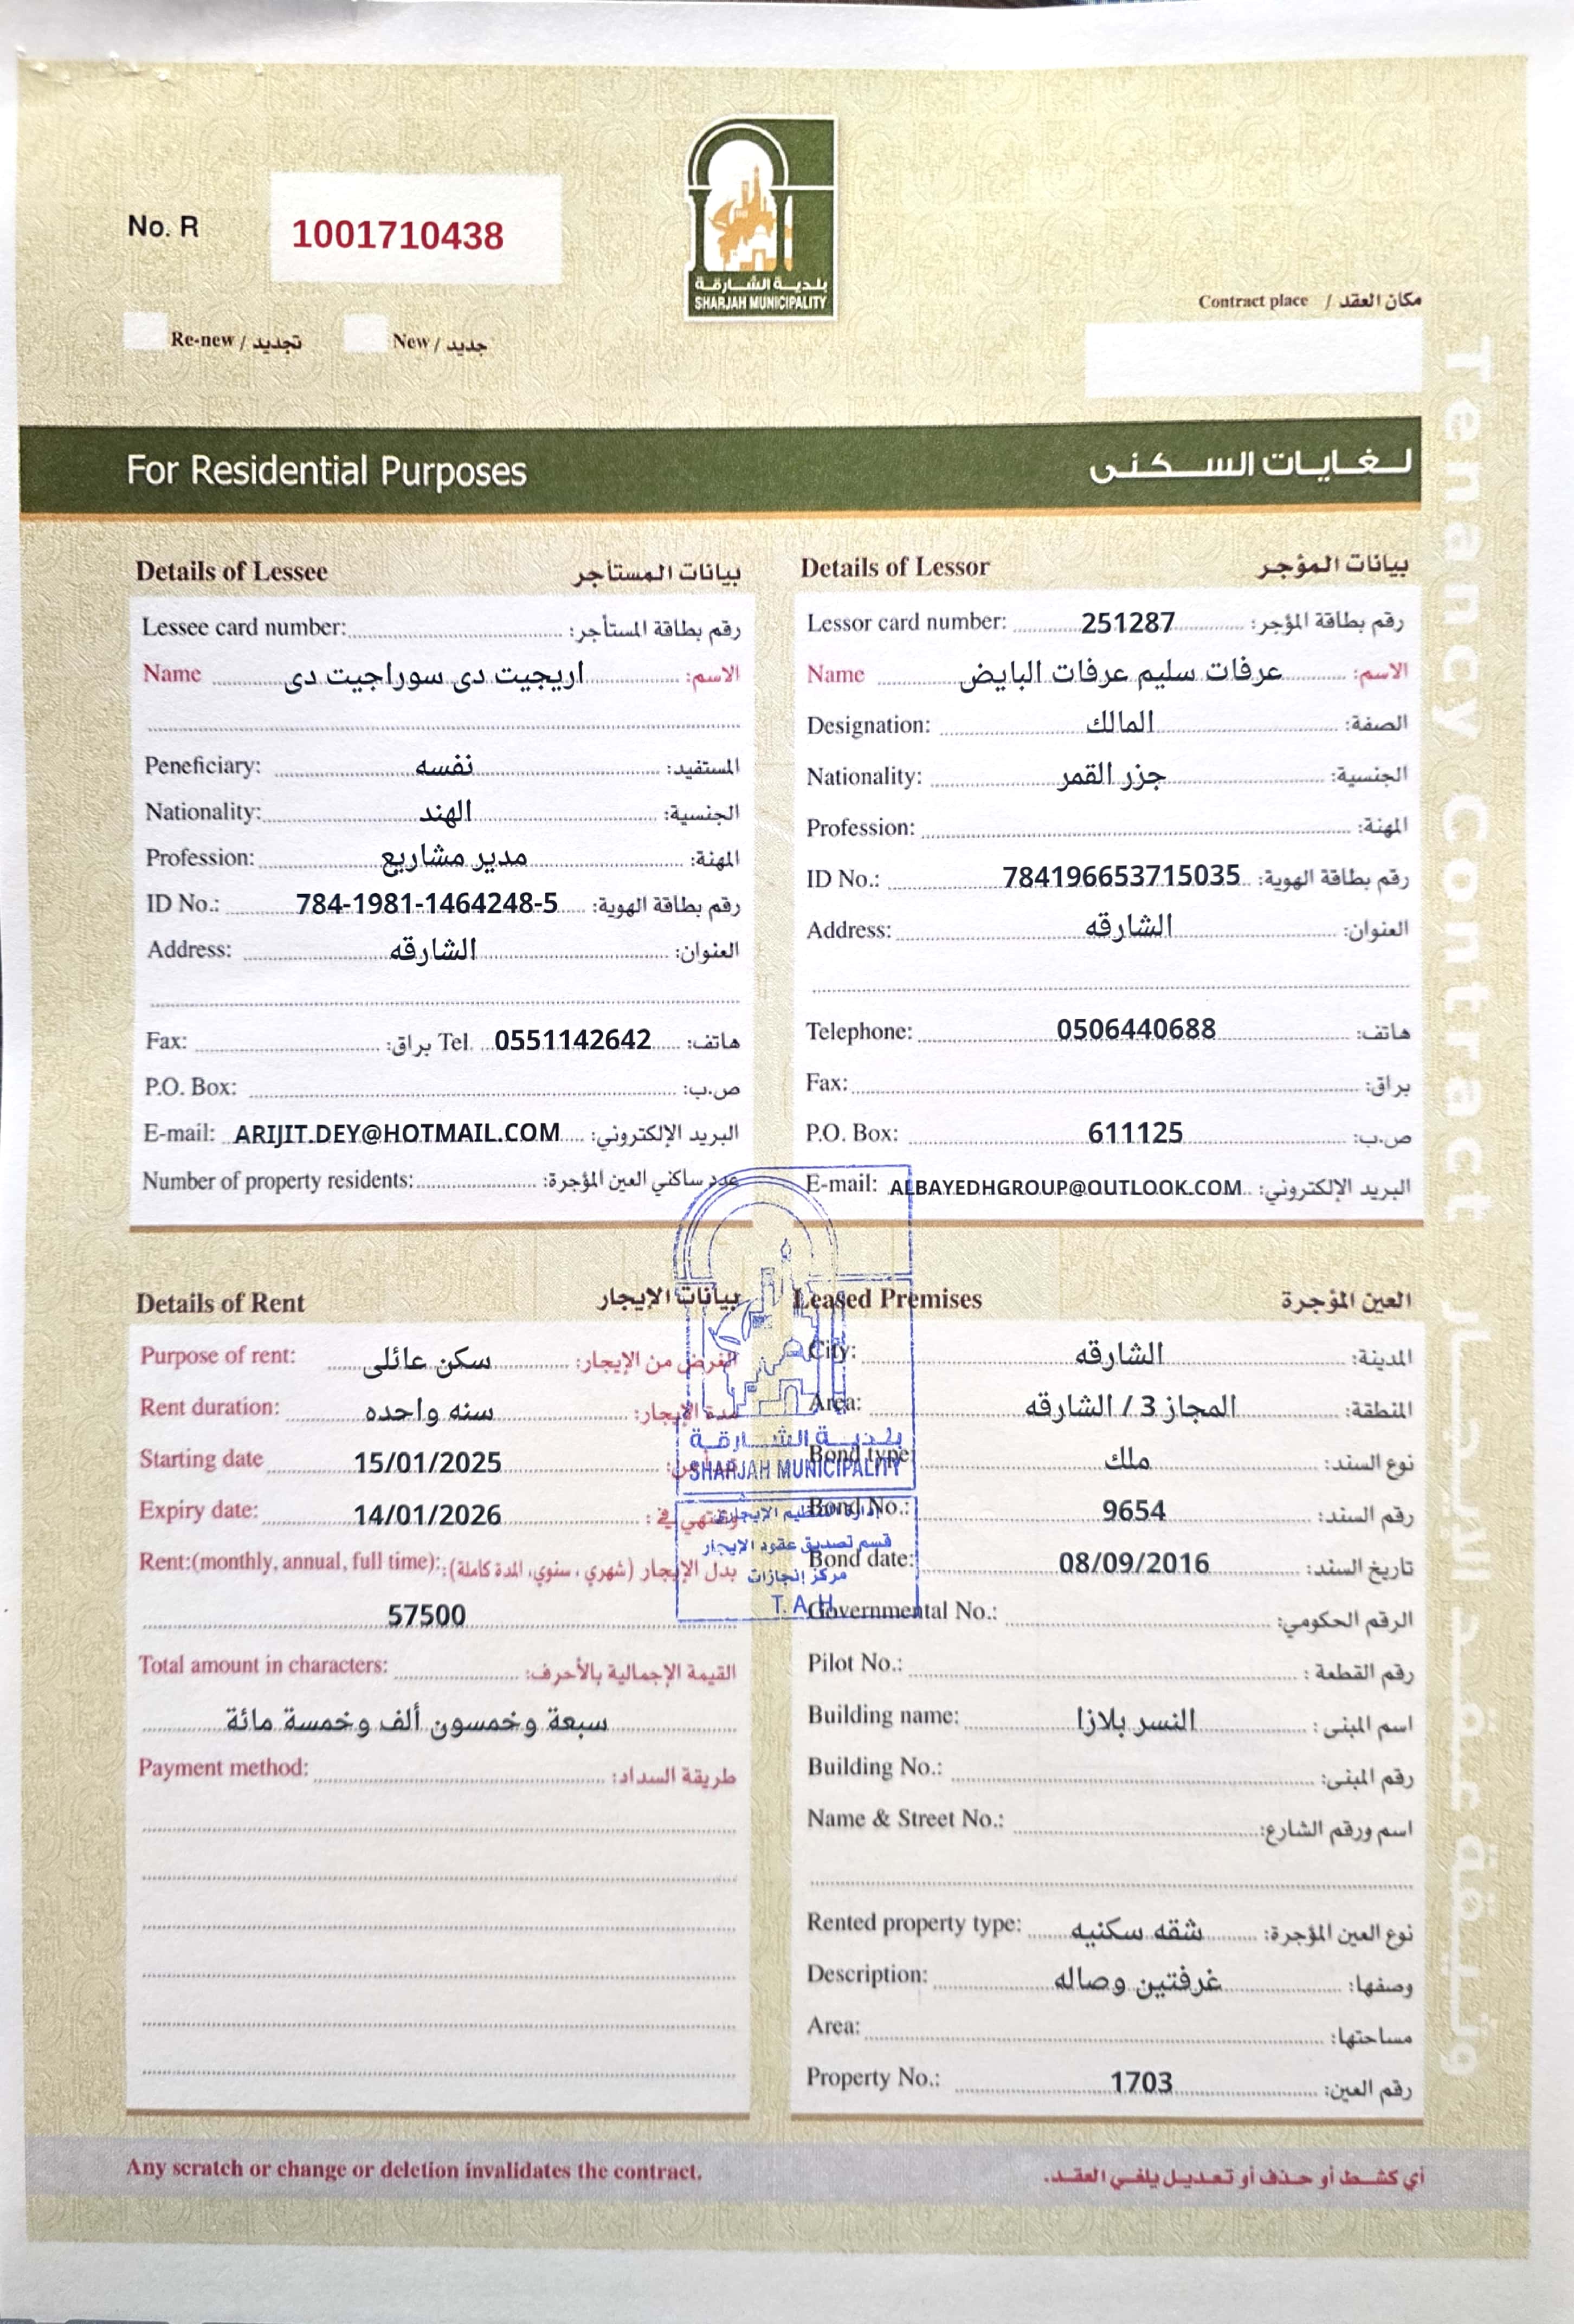 No. R 1001710438
بلدية الشارقة
SHARJAH MUNICIPALITY
Contract place / مكان العقد
Re-new / تجديد New / جديد
For Residential Purposes لغايات السكنى
Tenancy Contract
Details of Lessee بيانات المستأجر
Lessee card number: رقم بطاقة المستأجر:
Name اريجيت دى سوراجيت دى الاسم:
Peneficiary: نفسه المستفيد:
Nationality: الهند الجنسية:
Profession: مدير مشاريع المهنة:
ID No.: 784-1981-1464248-5 رقم بطاقة الهوية:
Address: الشارقه العنوان:
Fax: براق: Tel. 0551142642 هاتف:
P.O. Box: ص.ب:
E-mail: ARIJIT.DEY@HOTMAIL.COM البريد الإلكتروني:
Number of property residents: عدد ساكني العين المؤجرة:
Details of Lessor بيانات المؤجر
Lessor card number: 251287 رقم بطاقة المؤجر:
Name عرفات سليم عرفات البايض الاسم:
Designation: المالك الصفة:
Nationality: جزر القمر الجنسية:
Profession: المهنة:
ID No.: 784196653715035 رقم بطاقة الهوية:
Address: الشارقه العنوان:
Telephone: 0506440688 هاتف:
Fax: براق:
P.O. Box: 611125 ص.ب:
E-mail: ALBAYEDHGROUP@OUTLOOK.COM البريد الإلكتروني:
Details of Rent بيانات الإيجار
Purpose of rent: سكن عائلى الغرض من الإيجار:
Rent duration: سنه واحده مدة الإيجار:
Starting date 15/01/2025
Expiry date: 14/01/2026 وتنتهي في:
Rent:(monthly, annual, full time): بدل الإيجار (شهري، سنوي، المدة كاملة):
57500
Total amount in characters: القيمة الإجمالية بالأحرف:
سبعة وخمسون ألف وخمسة مائة
Payment method: طريقة السداد:
بلدية الشارقة
SHARJAH MUNICIPALITY
قسم تصديق عقود الإيجار
مركز إنجازات
T. A. H
Leased Premises العين المؤجرة
City: الشارقه المدينة:
Area: المجاز 3 / الشارقه المنطقة:
Bond type: ملك نوع السند:
Bond No.: 9654 رقم السند:
Bond date: 08/09/2016 تاريخ السند:
Governmental No.: الرقم الحكومي:
Pilot No.: رقم القطعة:
Building name: النسر بلازا اسم المبنى:
Building No.: رقم المبنى:
Name & Street No.: اسم ورقم الشارع:
Rented property type: شقه سكنيه نوع العين المؤجرة:
Description: غرفتين وصاله وصفها:
Area: مساحتها:
Property No.: 1703 رقم العين:
Any scratch or change or deletion invalidates the contract. أي كشط أو حذف أو تعديل يلغي العقد.